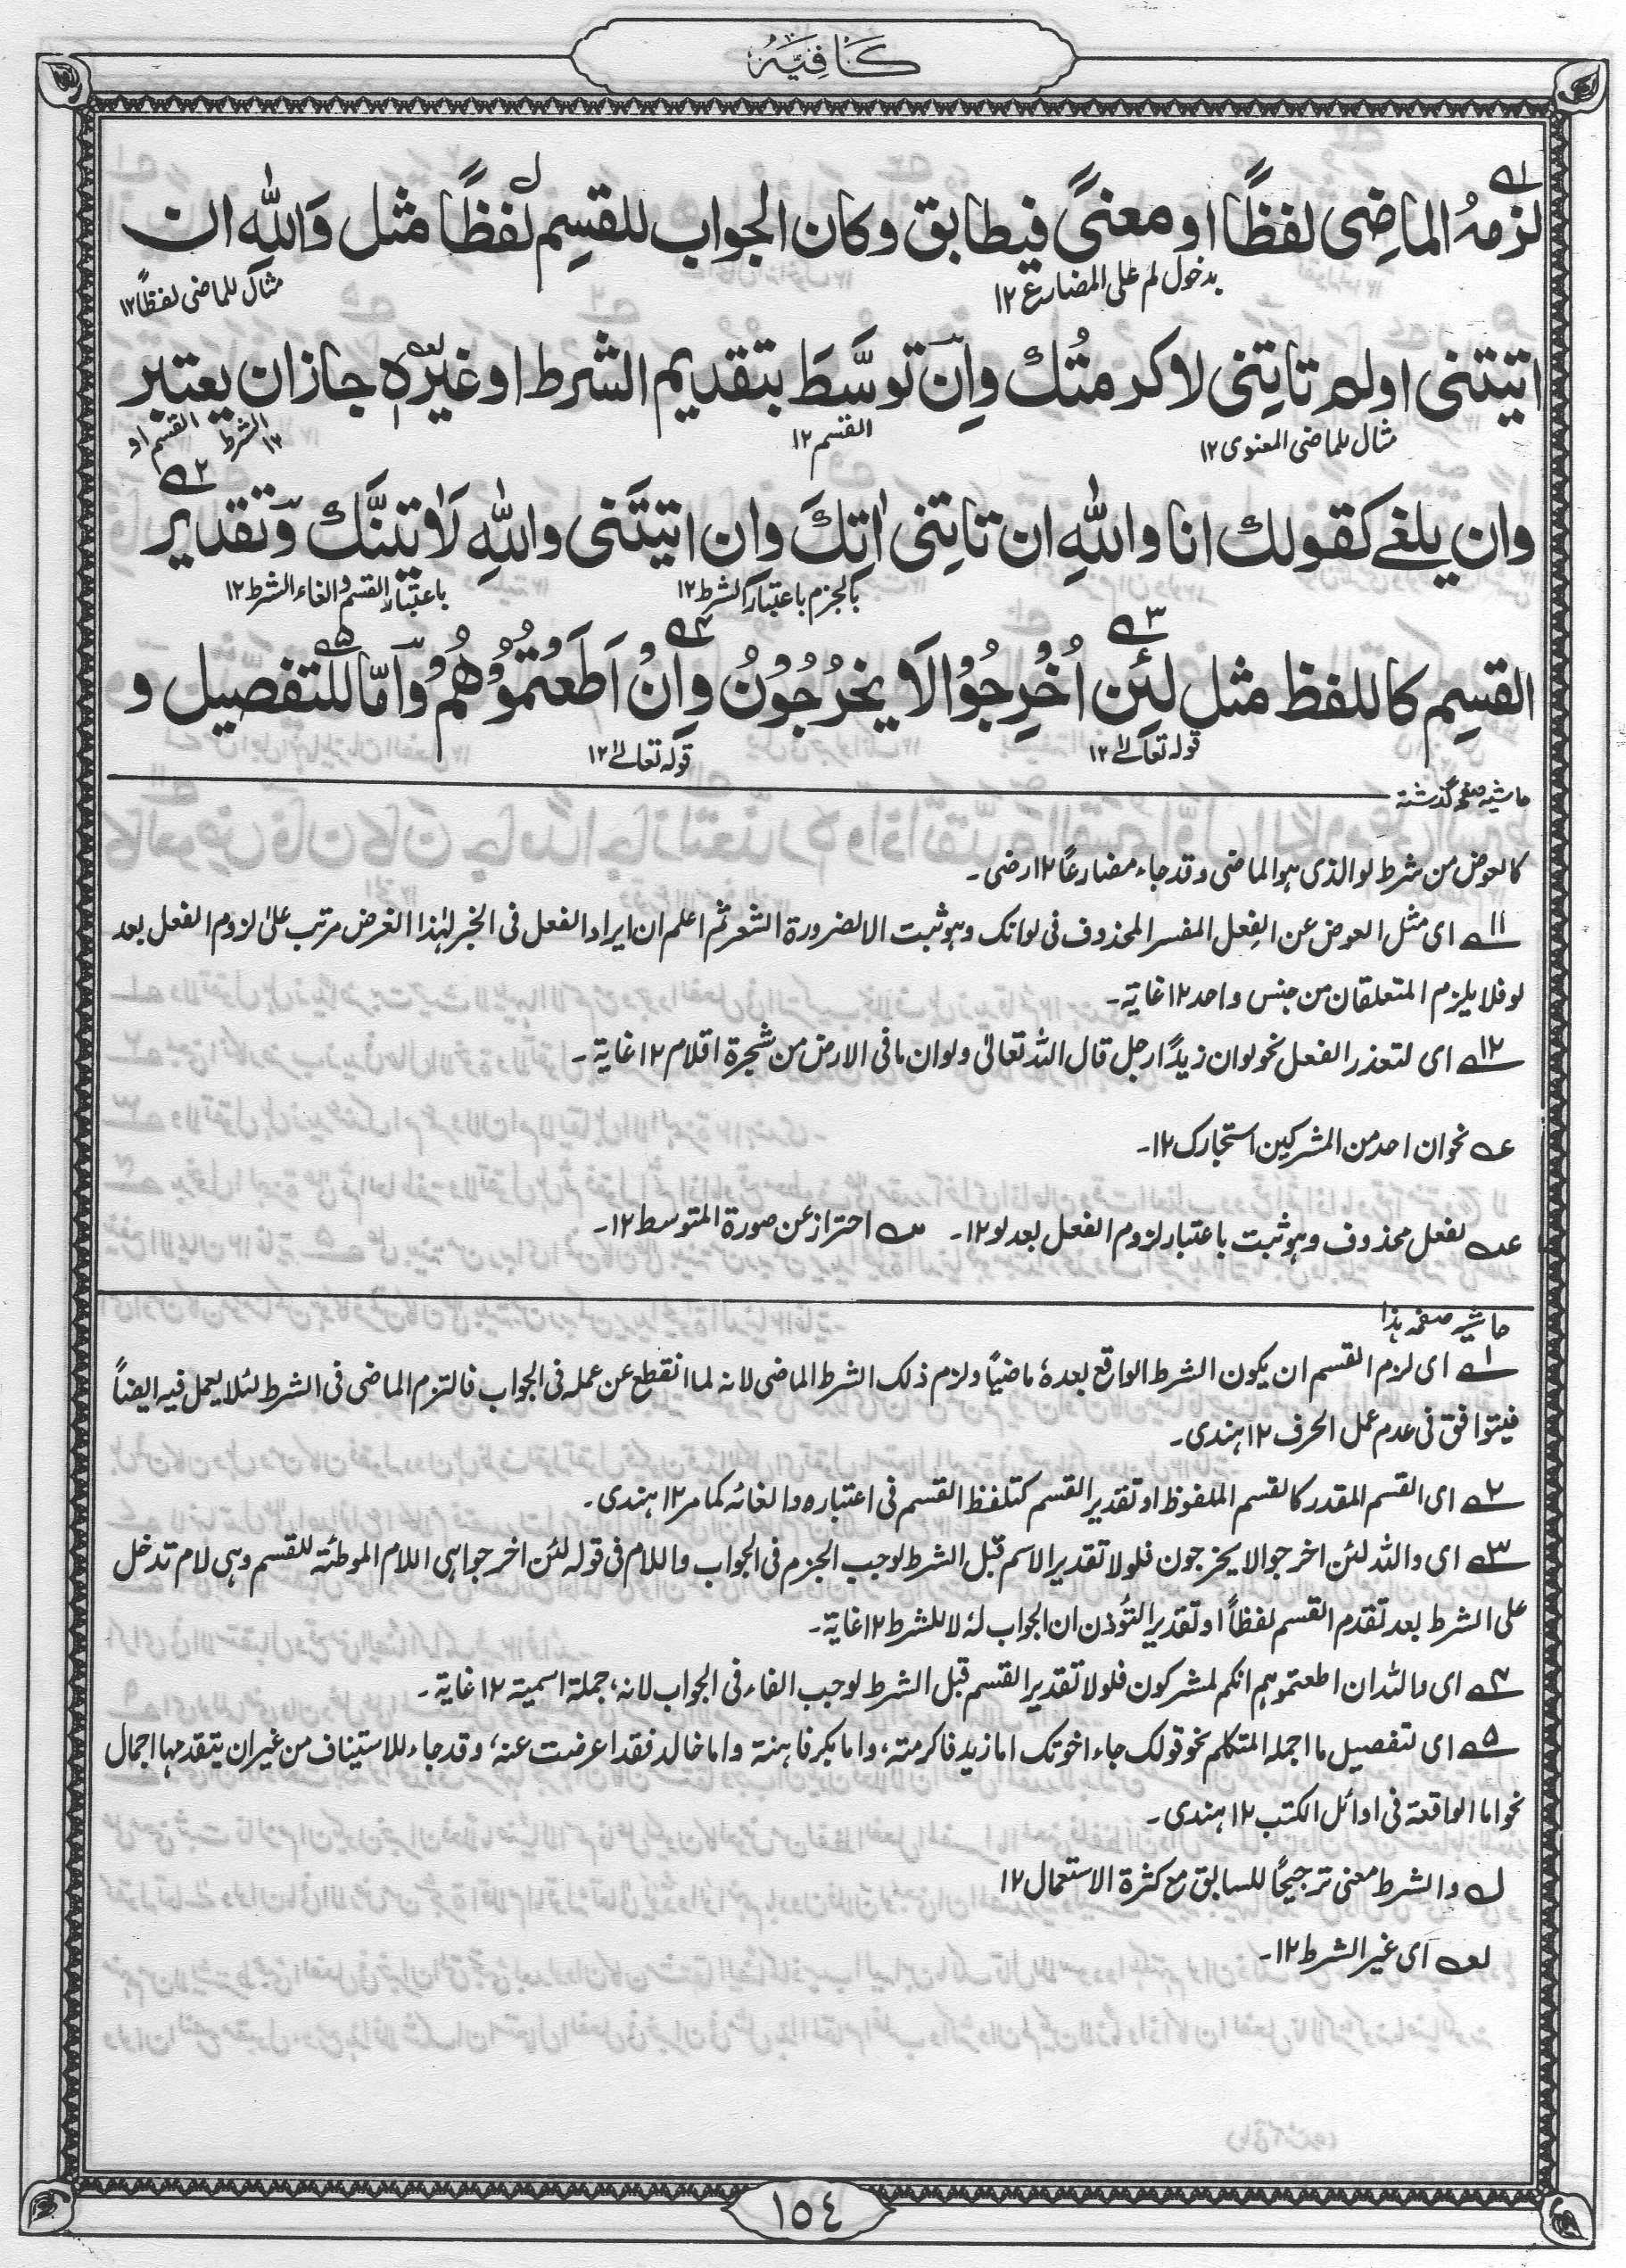 كَافِيَه
لزمهُ الماضِى لفظًا او معنىً فيطابق وكان الجواب للقسِمِ لفظًا مثل وَاللهِ ان
بدخول لم على المضارع ١٢ مثال للماضى لفظًا ١٢
اتيتنى اولم تاتِنى لاكرمتُك وان توسَّطَ بتقديم الشرط اوغيره جاز ان يعتبر
مثال للماضى المعنوى ١٢ القسم ١٢ القسم او الشرط ١٢
وان يلغى كقولك انا واللهِ ان تاتِنى اٰتِكَ وان اتيتَنى واللهِ لَاٰتِيَنَّك وتقدير
بالجزم باعتبار الشرط ١٢ باعتبار القسم والغاء الشرط ١٢
القسِمِ كاللفظ مثل لَئِن اُخْرِجُوْا لَا يَخْرُجُوْنَ وَاِنْ اَطَعْتُمُوْهُمْ وَاَمَّا للتفصيل و
قوله تعالىٰ ١٢ قوله تعالىٰ ١٢
حاشيه صفحه گذشته
كالعوض من شرط لو الذى هو الماضى وقد جاء مضارعًا ١٢ رضى۔
١١ اى مثل العوض عن الفعل المفسر المحذوف فى لو انك وهو ثبت الا لضرورة الشعر ثم اعلم ان ايراد الفعل فى الخبر لهٰذا الغرض مرتب علىٰ لزوم الفعل بعد
لو فلا يلزم المتعلقان من جنس واحد ١٢ غاية۔
١٢ اى لتعذر الفعل نحو لو ان زيدًا رجل قال الله تعالىٰ ولو ان ما فى الارض من شجرة اقلام ١٢ غاية۔
عہ نحو ان احد من المشركين استجارك ١٢۔
عہ لفعل محذوف وهو ثبت باعتبار لزوم الفعل بعد لو ١٢۔ سہ احتراز عن صورة المتوسط ١٢۔
حاشيه صفحه هذا
١ اى لزم القسم ان يكون الشرط الواقع بعده ماضيًا ولزم ذلك الشرط الماضى لانه لما انقطع عن عمله فى الجواب فالتزم الماضى فى الشرط لئلا يعمل فيه ايضاً
فيتوافق فى عدم عمل الحرف ١٢ هندى۔
٢ اى القسم المقدر كالقسم الملفوظ او تقدير القسم كتلفظ القسم فى اعتباره والغائه كما مر ١٢ هندى۔
٣ اى والله لئن اخرجوا لا يخرجون فلولا تقدير الاسم قبل الشرط لوجب الجزم فى الجواب واللام فى قوله لئن اخرجوا هى اللام الموطئة للقسم وهى لام تدخل
على الشرط بعد تقدم القسم لفظاً او تقديرا لتؤذن ان الجواب له لا للشرط ١٢ غاية۔
٤ اى والله ان اطعتموهم انكم لمشركون فلولا تقدير القسم قبل الشرط لوجب الفاء فى الجواب لانه جملة اسمية ١٢ غاية۔
٥ اى لتفصيل ما اجمله المتكلم نحو قولك جاء اخوتك اما زيد فاكرمته، واما بكر فاهنته واما خالد فقد اعرضت عنه، وقد جاء للاستيناف من غير ان يتقدمها اجمال
نحو اما الواقعة فى اوائل الكتب ١٢ هندى۔
لہ والشرط معنى ترجيحًا للسابق مع كثرة الاستعمال ١٢
لعہ اى غير الشرط ١٢۔
١٥٤